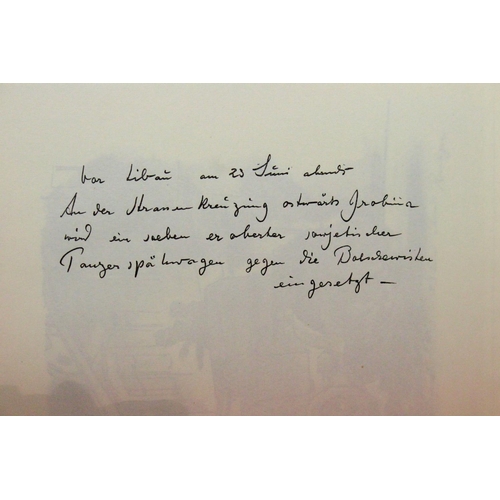 Vor Libau am 23 Juni abends
An der Strassenkreuzung ostwärts Grobina
wird ein soeben eroberter sowjetischer
Panzerspähwagen gegen die Bolschewisten
eingesetzt –